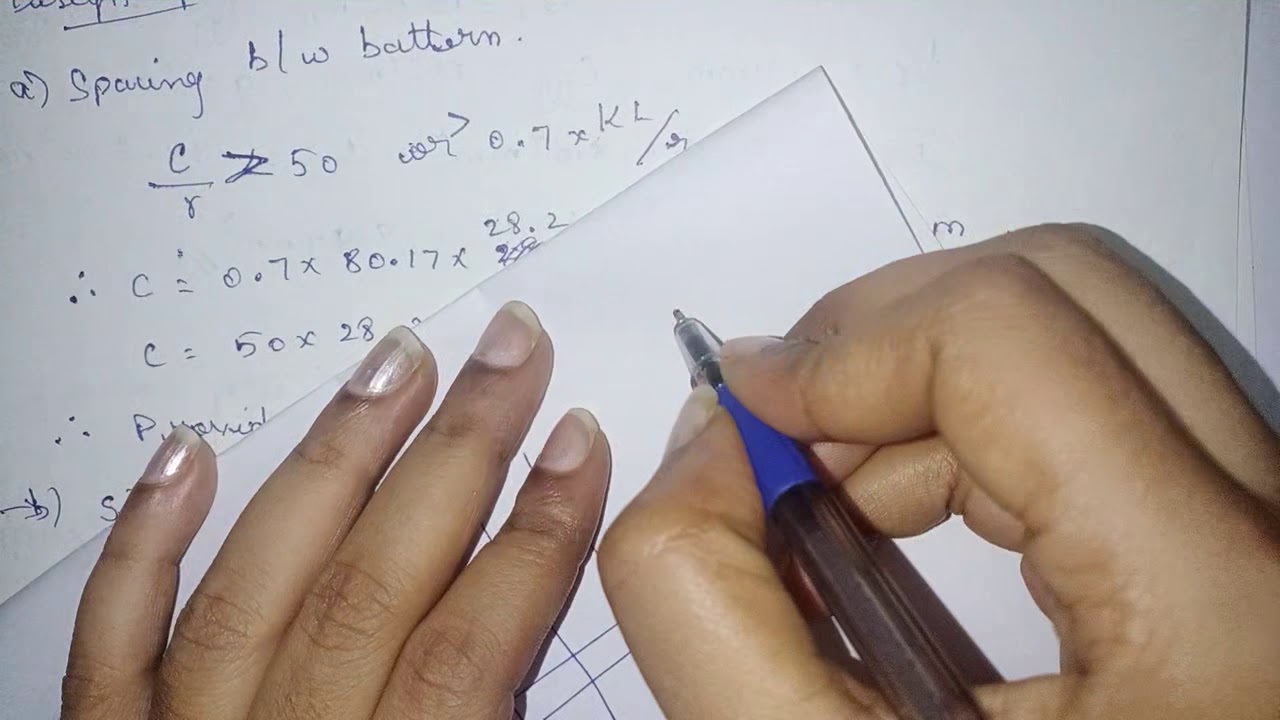 a) Spacing b/w battern.
C/r ≯ 50 or > 0.7 x KL/r
∴ C = 0.7 x 80.17 x 28.2
C = 50 x 28
∴ Provid
→ b) S
m